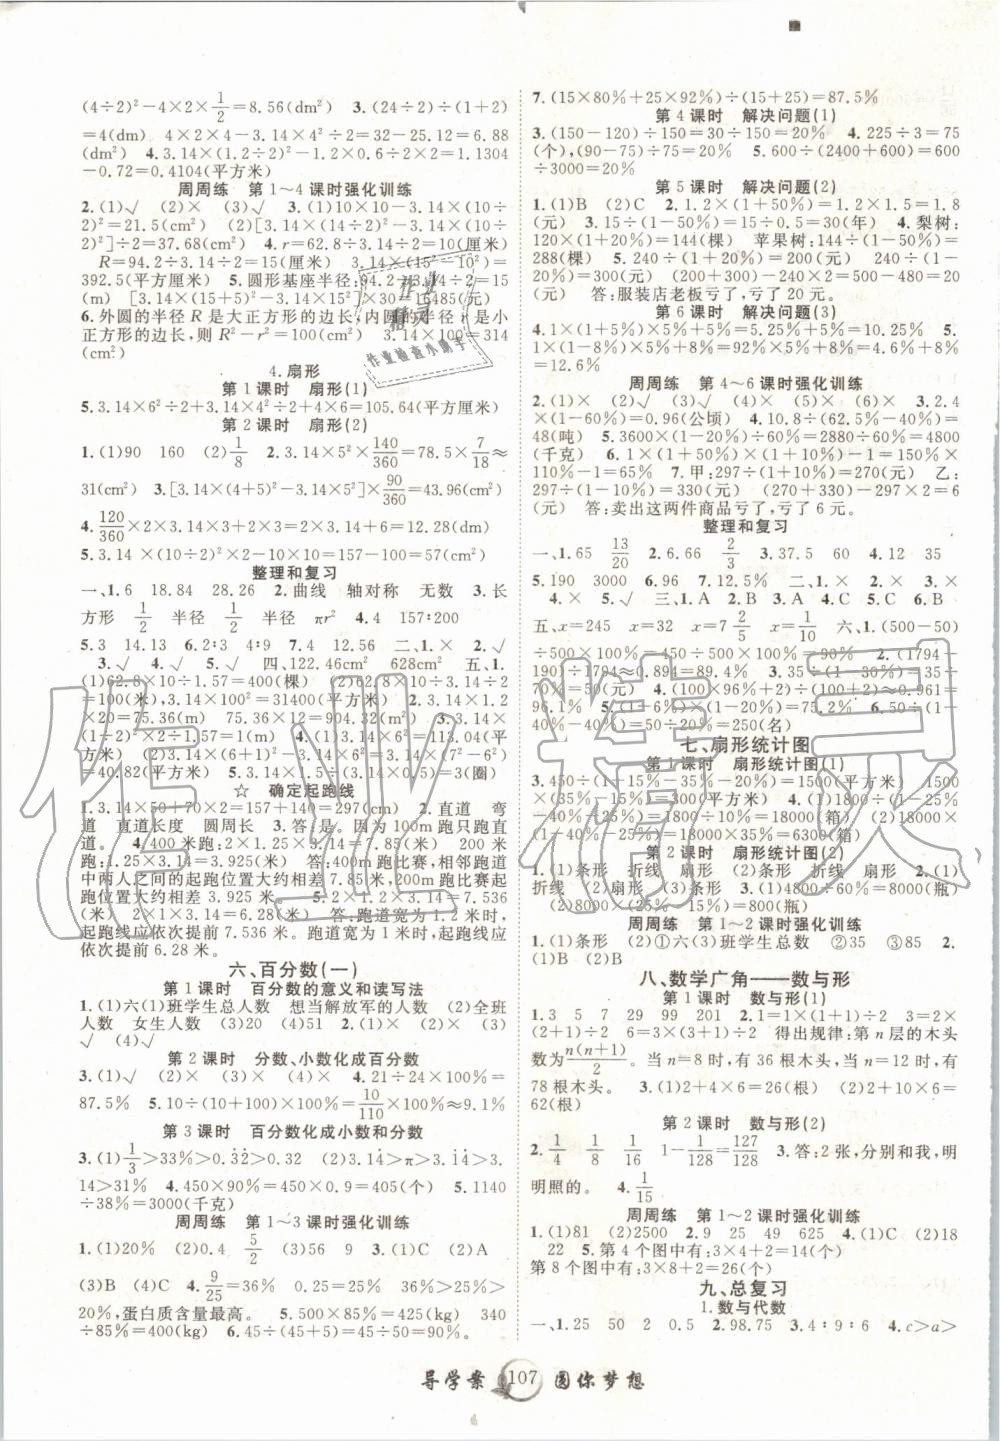 (4÷2)²-4×2×1/2=8.56(dm²)　3.(24÷2)÷(1+2)
=4(dm)　4×2×4-3.14×(4÷2)²×2=6.88
(dm²)　4.3.14×(1.2÷2)²-0.6×1.2=1.1304
-0.72=0.4104(平方米)
周周练　第1～4课时强化训练
2.(1)√　(2)×　(3)√　3.(1)10×10-3.14×(10÷
2)²=21.5(cm²)　(2)[3.14×(14÷2)²-3.14×(10÷
2)²]÷2=37.68(cm²)　4.r=62.8÷3.14÷2=10(厘米)
R=94.2÷3.14÷2=15(厘米)　3.14×(15²-10²)=
392.5(平方厘米)　5.圆形基座半径:94.2÷3.14÷2=15
(m)　[3.14×(15+5)²-3.14×15²]×30=16485(元)
6.外圆的半径R是大正方形的边长,内圆的半径r是小
正方形的边长,则R²-r²=100(cm²)　3.14×100=
314(cm²)
4.扇形
第1课时　扇形(1)
5.3.14×6²÷2+3.14×6×2÷2×6=105.64(平方厘米)
第2课时　扇形(2)
1.(1)90　160　(2)1/8　3.14×5²×140/360=78.5×7/18≈
31(cm²)　3.[3.14×(4+5)²-3.14×4²]×90/360=43.96(cm²)
4.120/360×2×3.14×3+3×2=12.28(dm)
5.3.14×(10÷2)²×2-10×10=157-100=57(cm²)
整理和复习
一、1.6　18.84　28.26　2.曲线　轴对称　无数　3.长
方形　1/2　半径　1/2　半径　πr²　4.4　157∶200
5.3　14.13　6.2∶3　4∶9　7.4　12.56　二、1.×　2.×
3.√　4.√　5.√　四、122.46cm²　628cm²　五、1.
(1)62.8×10÷1.57=400(棵)　(2)62.8×10÷3.14÷2
=100(米),3.14×100²=31400(平方米)　2.3.14×1.2
×20=75.36(m)　75.36×12=904.32(m)　3.3.14×
(1÷2)²×2÷1.57=1(m)　4.(1)3.14×6²=113.04(平方
米)　(2)3.14×(7²-6²)=40.82(平方米)
=40.82(平方米)　5.450÷(3.14×50)≈3(圈)
☆　确定起跑线
1.3.14×50+70×2=157+140=297(cm)　2.直道　弯
道　直道长度　圆周长　3.答:是。因为100m跑只跑直
道。　4.400米跑:2×1.25×3.14=7.85(米)　200米
跑:1.25×3.14=3.925(米)　答:400m跑比赛,相邻跑道
中两人之间的起跑位置大约相差7.85米,200m跑比赛起
跑位置大约相差3.925米。　5.2×1.2×3.14=7.536
(米)　2×1×3.14=6.28(米)　答:跑道宽为1.2米时,
起跑线应依次提前7.536米。跑道宽为1米时,起跑线应
依次提前6.28米。
六、百分数(一)
第1课时　百分数的意义和读写法
1.(1)六(1)班学生总人数　想当解放军的人数　(2)全班
人数　女生人数　(3)20　(4)51　2.(1)×　(2)×　(3)
√　(4)×
第2课时　分数、小数化成百分数
3.(1)√　(2)×　(3)×　(4)×　4.21÷24×100%=
87.5%　5.10÷(10+100)×100%=10/110×100%≈9.1%
第3课时　百分数化成小数和分数
3.(1)1/3>33%>0.3̇2̇>0.32　(2)3.14̇>π>3.1̇4̇>3.14
>31%　4.450×90%=450×0.9=405(个)　5.1140
÷38%=3000(千克)
周周练　第1～3课时强化训练
1.(1)20%　(2)0.4　5/2　(3)56　9　2.(1)C　(2)A
(3)B　(4)C　4.9/25=36%　0.25=25%　36%>25%>
20%,蛋白质含量最高。　5.500×85%=425(kg)　340
÷85%=400(kg)　6.45÷(45+5)=45÷50=90%。
7.(15×80%+25×92%)÷(15+25)=87.5%
第4课时　解决问题(1)
3.(150-120)÷150=30÷150=20%　4.225÷3=75
(个),(90-75)÷75=20%　5.600÷(2400+600)=600
÷3000=20%
第5课时　解决问题(2)
1.(1)B　(2)C　2.1.2×(1+50%)=1.2×1.5=1.8
(元)　3.15÷(1-50%)=15÷0.5=30(年)　4.梨树:
120×(1+20%)=144(棵)　苹果树:144÷(1-50%)=
288(棵)　5.240÷(1+20%)=200(元)
240÷(1-20%)=300(元)　240×2=300-200=500-480=20
(元)　答:服装店老板亏了,亏了20元。
第6课时　解决问题(3)
4.1×(1+5%)×5%+5%=5.25%+5%=10.25%　5.
1×(1-8%)×5%+8%=92%×5%+8%=4.6%+8%
=12.6%
周周练　第4～6课时强化训练
2.(1)×　(2)√　(3)√　(4)×　(5)×　(6)×　3.2.4
×(1-60%)=0.96(公顷)　4.10.8÷(62.5%-40%)=
48(吨)　5.3600×(1-20%)÷60%=2880÷60%=4800
(千克)　6.1×(1+50%)×(1+10%)-1=150%×
110%-1=65%　7.甲:297÷(1+10%)=270(元)　乙:
297÷(1-10%)=330(元)　(270+330)-297×2=6
(元)　答:卖出这两件商品亏了,亏了6元。
整理和复习
一、1.65　13/20　2.6.66　2/3　3.37.5　60　4.12　35
5.190　3000　6.96　7.115.2　二、1.×　2.×　3.
×　4.×　5.√　三、1.B　2.B　3.A　4.A　5.C　6.B
五、x=245　x=32　x=7 2/5　x=1/10　六、1.(500-50)
÷500×100%=450÷500×100%=90%　2.(1794-
190)÷1794≈0.894=89.4%　3.35÷(1-30%)=35÷
70%=50(元)　4.(100×96%+100)÷(100+100)×…≈0.961=
96.1%　5.(1-6%)×…%=75.2%　6.50÷(1-
40%-40%)=50÷20%=250(名)
七、扇形统计图
第1课时　扇形统计图(1)
3.450÷(1-15%-35%-20%)=1500(平方米)　1500
×(35%-15%)=300(平方米)　4.(1)1800÷(1-25%
-40%-25%)=1800÷10%=18000(箱)　(2)18000×
(1-40%-25%)=18000×35%=6300(箱)
第2课时　扇形统计图(2)
1.(1)条形　折线　扇形　(2)条形　折线　扇形　2.(1)
折线　(2)扇形　(3)条形　3.(1)4800÷60%=8000(瓶)
(2)8000×(25%-15%)=8000×10%=800(瓶)
周周练　第1～2课时强化训练
1.(1)条形　(2)①六(3)班学生总数　②35　③85　2.
(1)B　(2)B
八、数学广角——数与形
第1课时　数与形(1)
1.3　5　7　29　99　201　2.1=1×(1+1)÷2　3=2×
(2+1)÷2　6=3×(3+1)÷2　得出规律:第n层的木头
数为n(n+1)/2。当n=8时,有36根木头,当n=12时,有
78根木头。　3.(1)2+4×6=26(根)　(2)2+10×6=
62(根)
第2课时　数与形(2)
2.1/4　1/8　1/16　1-1/128=127/128　3.答:2张,分别和我,明
明照的。　4.1/15
周周练　第1～2课时强化训练
1.(1)81　(2)2500　2.9　25　49　625　3.(2)C　4.(2)18
22　5.第4个图中有:3×4+2=14(个)
第8个图中有:3×8+2=26(个)
九、总复习
1.数与代数
一、1.25　50　2　0.5　2.98.75　3.4∶9∶6　4.c>a>
导学案　107　圆你梦想